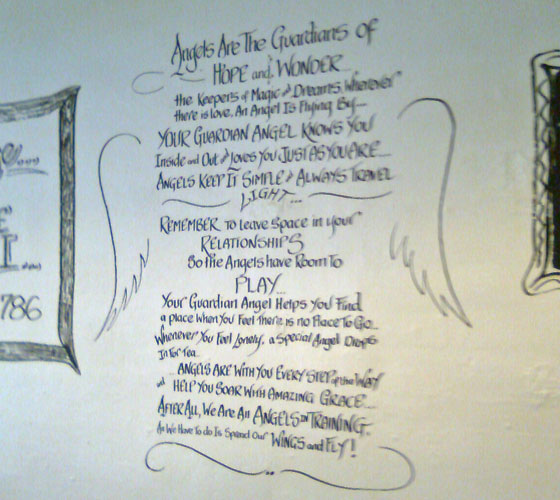 Angels Are The Guardians of
HOPE and WONDER...
the Keepers of Magic and Dreams. Wherever
there is love, An Angel Is Flying By....
YOUR GUARDIAN ANGEL KNOWS YOU
Inside and Out and Loves You JUST AS YOU ARE....
ANGELS KEEP IT SIMPLE and ALWAYS TRAVEL
LIGHT...
REMEMBER to leave space in your
RELATIONSHIPS
So the Angels have Room To
PLAY...
Your Guardian Angel Helps You Find
a place When You Feel there is no Place To Go...
Whenever You Feel Lonely, a Special Angel Drops
In For Tea...
...ANGELS ARE WITH YOU EVERY STEP of the WAY
and HELP YOU SOAR WITH AMAZING GRACE....
AFTER ALL, We Are All ANGELS IN TRAINING..
All We Have To do Is Spread Our WINGS and FLY!
786